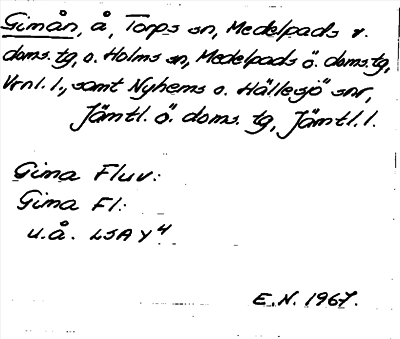 Gimån, å, Torps sn, Medelpads v.
doms. tg, o. Holms sn, Medelpads ö. doms. tg,
Vrnl. l., samt Nyhems o. Hällesjö snr,
Jämtl. ö. doms. tg, Jämtl. l.
Gima Fluv:
Gima Fl:
u.å. LSA Y4
E.N. 1967.